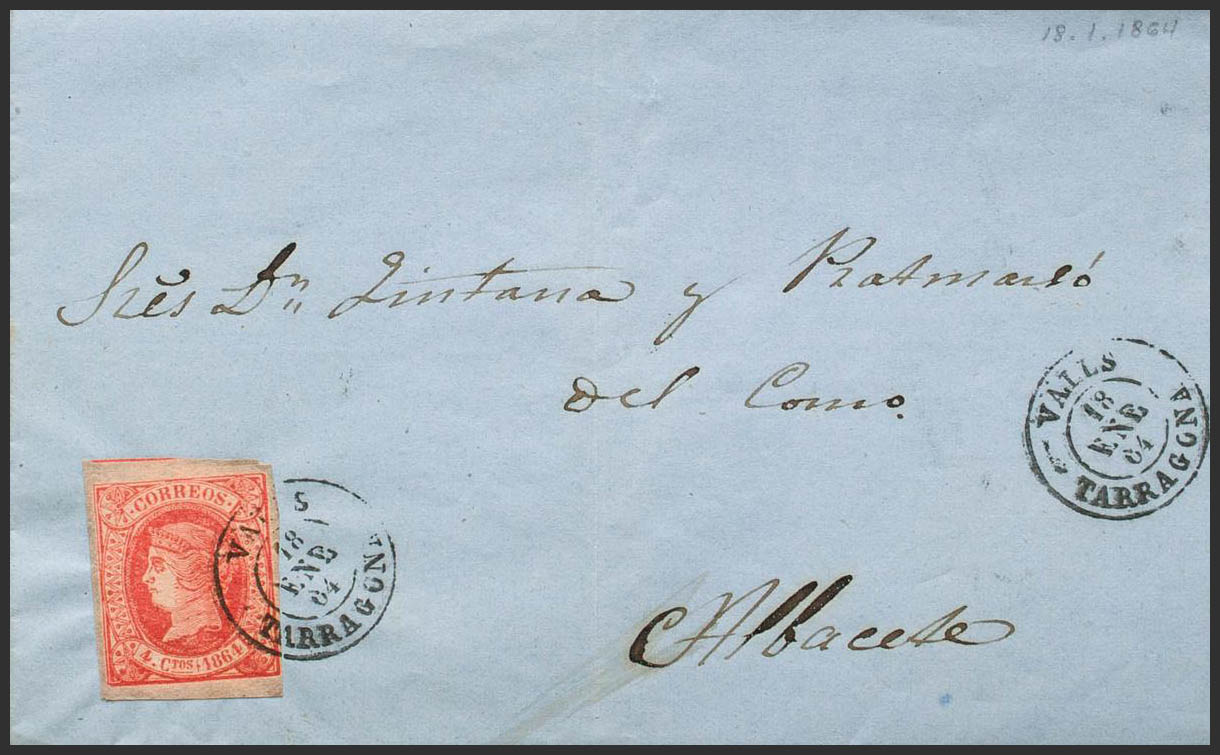 18.1.1864
Sres Dn Quintana y Ratmaró
del Como.
VALLS
18
ENE
64
TARRAGONA
CORREOS
4. CTOS 1864
VA S
18
ENE
64
TARRAGONA
Albacete